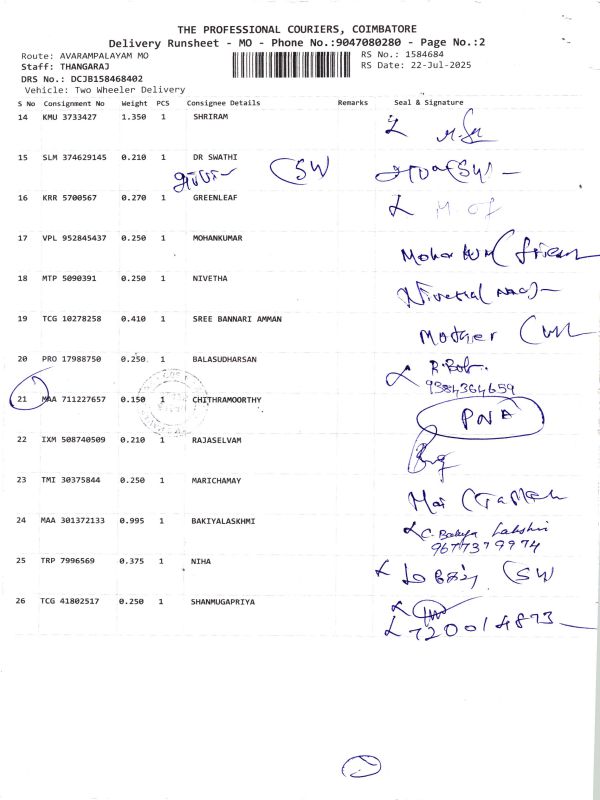 THE PROFESSIONAL COURIERS, COIMBATORE
Delivery Runsheet - MO - Phone No.:9047080280 - Page No.:2
Route: AVARAMPALAYAM MO RS No.: 1584684
Staff: THANGARAJ RS Date: 22-Jul-2025
DRS No.: DCJB158468402
Vehicle: Two Wheeler Delivery
S No Consignment No Weight PCS Consignee Details Remarks Seal & Signature
14 KMU 3733427 1.350 1 SHRIRAM
15 SLM 374629145 0.210 1 DR SWATHI
(SW
16 KRR 5700567 0.270 1 GREENLEAF
17 VPL 952845437 0.250 1 MOHANKUMAR
18 MTP 5090391 0.250 1 NIVETHA
19 TCG 10278258 0.410 1 SREE BANNARI AMMAN Mother
20 PRO 17988750 0.250 1 BALASUDHARSAN
9384364659
21 MAA 711227657 0.150 1 CHITHRAMOORTHY PNA
22 IXM 508740509 0.210 1 RAJASELVAM
23 TMI 30375844 0.250 1 MARICHAMAY
24 MAA 301372133 0.995 1 BAKIYALASKHMI
9677379974
25 TRP 7996569 0.375 1 NIHA (SW
26 TCG 41802517 0.250 1 SHANMUGAPRIYA
720014873